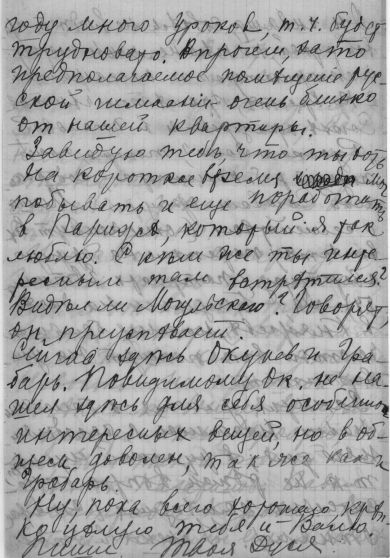 году много уроков, т. ч. будет
трудновато. Впрочем, зато
предполагаемое помѣщение рус-
ской гимназии очень близко
от нашей квартиры.
Завидую тебѣ, что ты хоть
на короткое время
побывать и еще поработать
в Парижѣ, который я так
люблю. С кем же ты инте-
ресным там встрѣтился?
Видѣл ли Могульского? Говорят
он преуспѣвает.
Сейчас здѣсь Окунев и Гра-
барь. Повидимому Ок. не на-
шел здѣсь для себя особенно
интересных вещей, но в об-
щем доволен, также как и
Грабарь.
Ну, пока всего хорошаго креп-
ко цѣлую тебя и Валю.
Пиши. Твоя Дуся